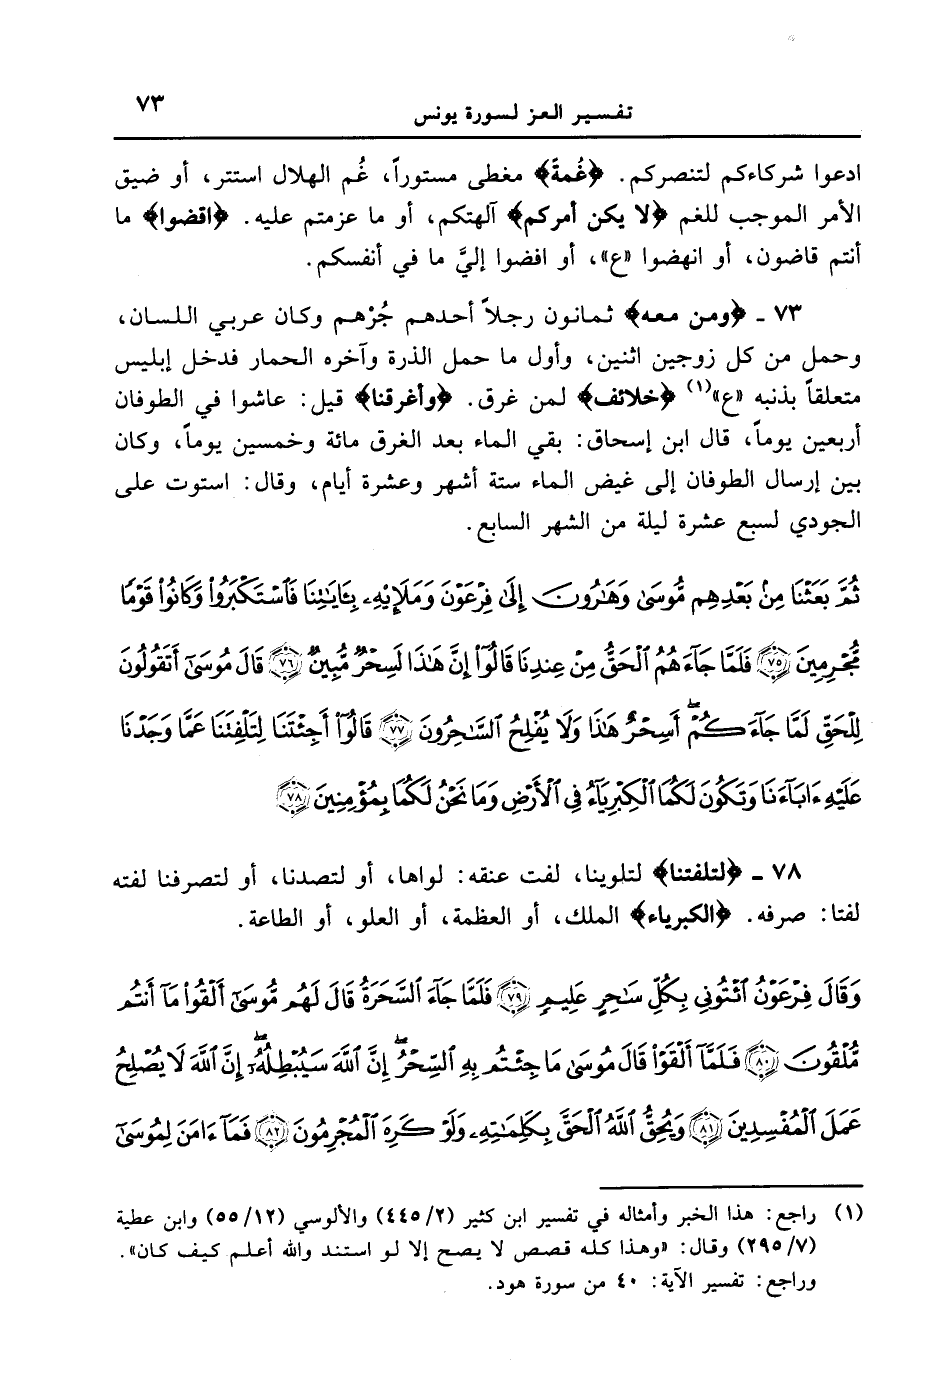 تفسير العز لسورة يونس ٧٣
ادعوا شركاءكم لتنصركم. ﴿غُمةً﴾ مغطى مستوراً، غُم الهلال استتر، أو ضيق
الأمر الموجب للغم ﴿لا يكن أمركم﴾ آلهتكم، أو ما عزمتم عليه. ﴿اقضوا﴾ ما
أنتم قاضون، أو انهضوا «ع»، أو افضوا إليَّ ما في أنفسكم.
٧٣ ـ ﴿ومن معه﴾ ثمانون رجلاً أحدهم جُرْهم وكان عربي اللسان،
وحمل من كل زوجين اثنين، وأول ما حمل الذرة وآخره الحمار فدخل إبليس
متعلقاً بذنبه «ع»(١) ﴿خلائف﴾ لمن غرق. ﴿وأغرقنا﴾ قيل: عاشوا في الطوفان
أربعين يوماً، قال ابن إسحاق: بقي الماء بعد الغرق مائة وخمسين يوماً، وكان
بين إرسال الطوفان إلى غيض الماء ستة أشهر وعشرة أيام، وقال: استوت على
الجودي لسبع عشرة ليلة من الشهر السابع.
ثُمَّ بَعَثْنَا مِنۢ بَعْدِهِم مُّوسَىٰ وَهَـٰرُونَ إِلَىٰ فِرْعَوْنَ وَمَلَإِيْهِۦ بِـَٔايَـٰتِنَا فَٱسْتَكْبَرُوا۟ وَكَانُوا۟ قَوْمًا
مُّجْرِمِينَ ﴿٧٥﴾ فَلَمَّا جَآءَهُمُ ٱلْحَقُّ مِنْ عِندِنَا قَالُوٓا۟ إِنَّ هَـٰذَا لَسِحْرٌ مُّبِينٌ ﴿٧٦﴾ قَالَ مُوسَىٰٓ أَتَقُولُونَ
لِلْحَقِّ لَمَّا جَآءَكُمْ ۖ أَسِحْرٌ هَـٰذَا وَلَا يُفْلِحُ ٱلسَّـٰحِرُونَ ﴿٧٧﴾ قَالُوٓا۟ أَجِئْتَنَا لِتَلْفِتَنَا عَمَّا وَجَدْنَا
عَلَيْهِ ءَابَآءَنَا وَتَكُونَ لَكُمَا ٱلْكِبْرِيَآءُ فِى ٱلْأَرْضِ وَمَا نَحْنُ لَكُمَا بِمُؤْمِنِينَ ﴿٧٨﴾
٧٨ ـ ﴿لتلفتنا﴾ لتلوينا، لفت عنقه: لواها، أو لتصدنا، أو لتصرفنا لفته
لفتا: صرفه. ﴿الكبرياء﴾ الملك، أو العظمة، أو العلو، أو الطاعة.
وَقَالَ فِرْعَوْنُ ٱئْتُونِى بِكُلِّ سَـٰحِرٍ عَلِيمٍ ﴿٧٩﴾ فَلَمَّا جَآءَ ٱلسَّحَرَةُ قَالَ لَهُم مُّوسَىٰٓ أَلْقُوا۟ مَآ أَنتُم
مُّلْقُونَ ﴿٨٠﴾ فَلَمَّآ أَلْقَوْا۟ قَالَ مُوسَىٰ مَا جِئْتُم بِهِ ٱلسِّحْرُ ۖ إِنَّ ٱللَّهَ سَيُبْطِلُهُۥٓ ۖ إِنَّ ٱللَّهَ لَا يُصْلِحُ
عَمَلَ ٱلْمُفْسِدِينَ ﴿٨١﴾ وَيُحِقُّ ٱللَّهُ ٱلْحَقَّ بِكَلِمَـٰتِهِۦ وَلَوْ كَرِهَ ٱلْمُجْرِمُونَ ﴿٨٢﴾ فَمَآ ءَامَنَ لِمُوسَىٰٓ
(١) راجع: هذا الخبر وأمثاله في تفسير ابن كثير (٤٤٥/٢) والألوسي (٥٥/١٢) وابن عطية
(٢٩٥/٧) وقال: «وهذا كله قصص لا يصح إلا لو استند والله أعلم كيف كان».
وراجع: تفسير الآية: ٤٠ من سورة هود.